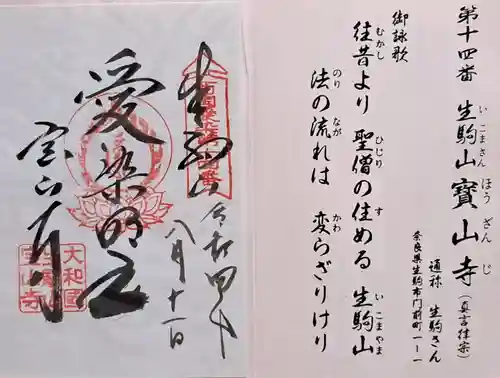 第十四番 生駒山寳山寺(真言律宗)
いこまさん ほうざんじ
通称 生駒さん
奈良県生駒市門前町一ー一
御詠歌
往昔より 聖僧の住める 生駒山
むかし ひじり す いこまやま
法の流れは 変らざりけり
のり なが かわ
生駒山
愛染明王
宝山寺
令和四年
八月十一日
大和國
生駒山
宝山寺